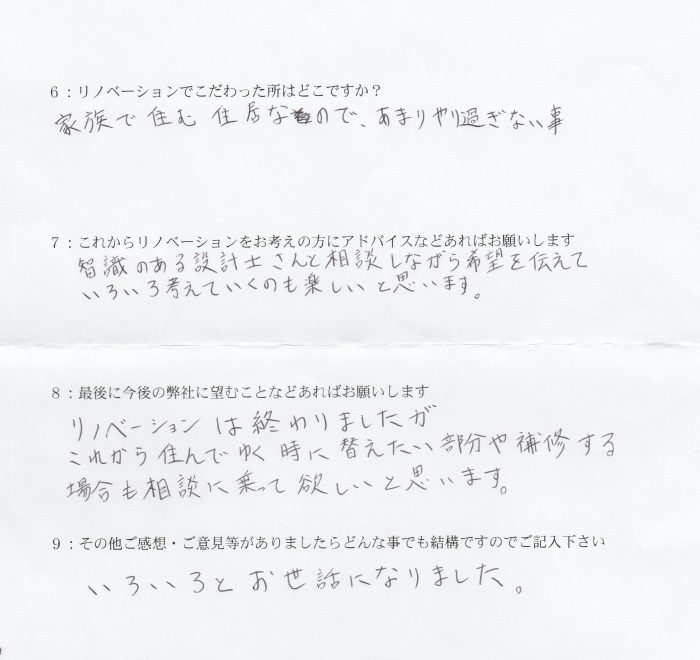 6：リノベーションでこだわった所はどこですか？
家族で住む住居なので、あまりやり過ぎない事
7：これからリノベーションをお考えの方にアドバイスなどあればお願いします
智識のある設計士さんと相談しながら希望を伝えて
いろいろ考えていくのも楽しいと思います。
8：最後に今後の弊社に望むことなどあればお願いします
リノベーションは終わりましたが
これから住んでゆく時に替えたい部分や補修する
場合も相談に乗って欲しいと思います。
9：その他ご感想・ご意見等がありましたらどんな事でも結構ですのでご記入下さい
いろいろとお世話になりました。